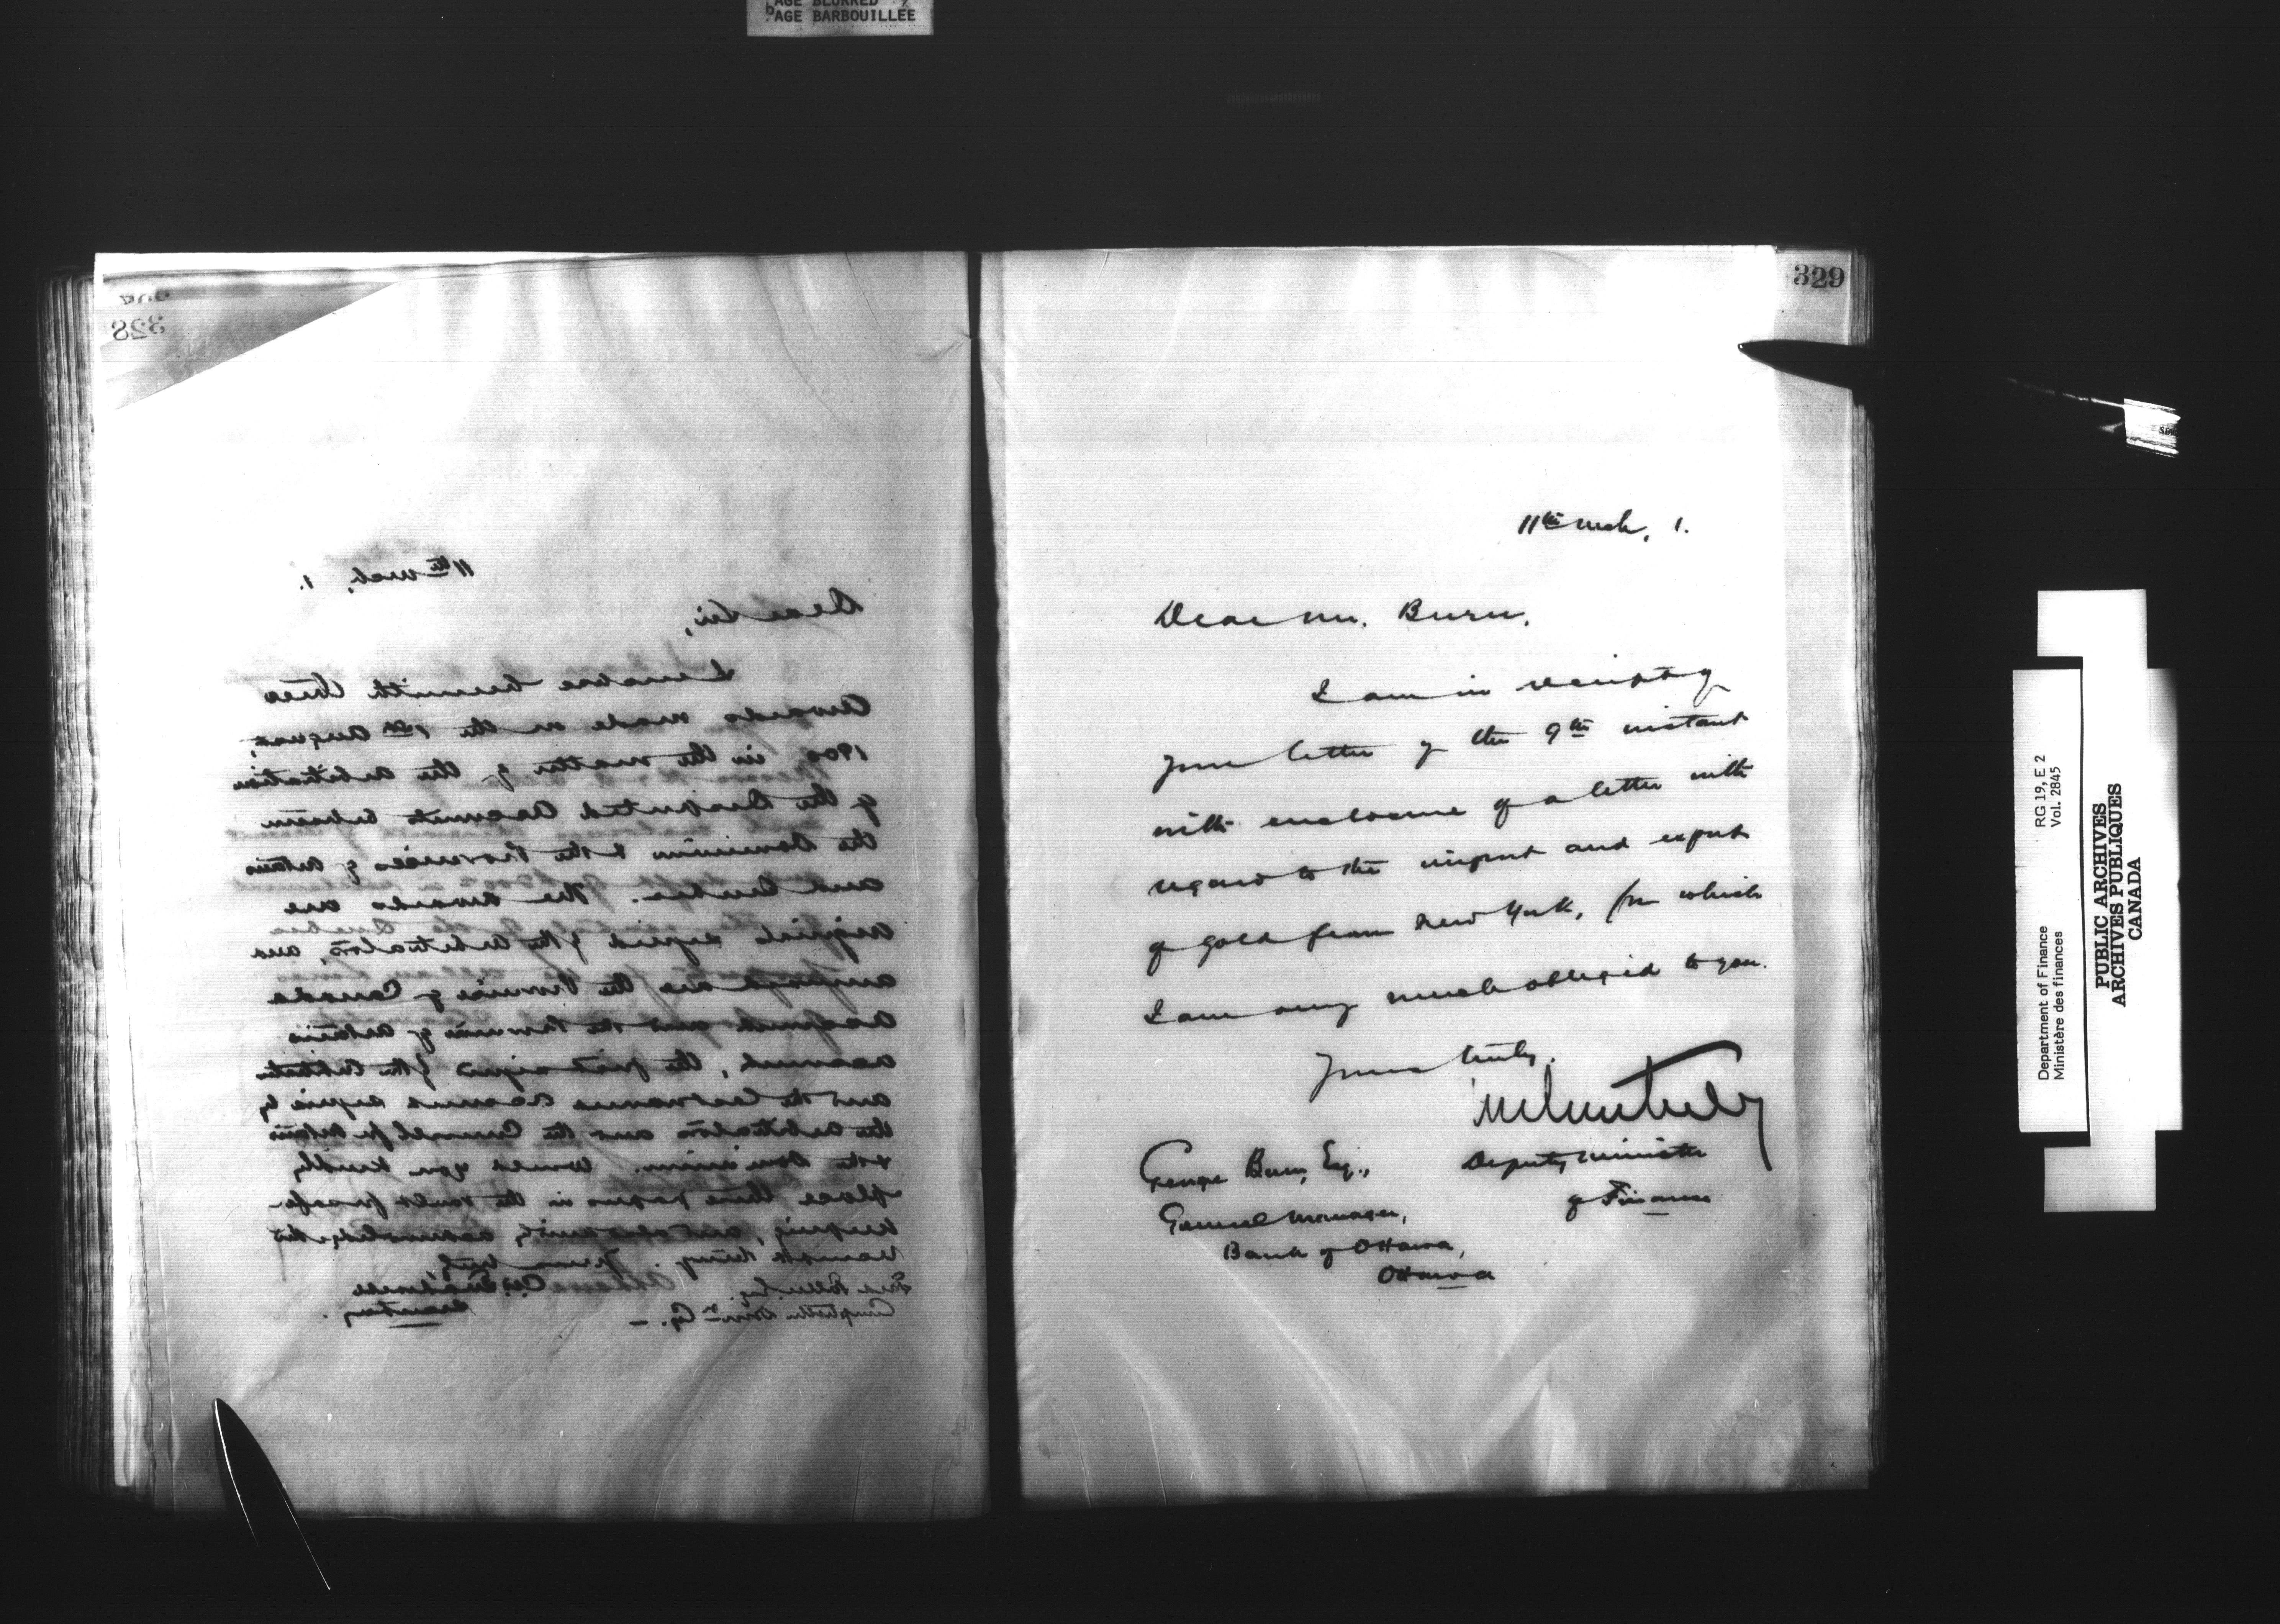 PAGE BLURRED
PAGE BARBOUILLÉE
328
11th Mch, 1.
Dear Sir,
I enclose herewith three
Awards made on the 1st August,
1900, in the matter of the Arbitration
of the Disputed Accounts between
the Dominion & the Provinces of Ontario
and Quebec. The awards are
original signed by the Arbitrators, and
are the Province of Canada
Account and the Province of Ontario
account, the signed by the Arbitrators
and the Accounts signed by
the arbitrators and the Counsel for Ontario
& the Dominion. Would you kindly
place these papers in the vault for safe
keeping, and acknowledge the
Yours truly,
Secretary
329
11th Mch, 1.
Dear Mr. Burn,
I am in receipt of
your letter of the 9th instant
with enclosure of a letter with
regard to the import and export
of gold from New York, for which
I am very much obliged to you.
Yours truly,
Deputy Minister
of Finance
George Burn, Esq.,
General Manager,
Bank of Ottawa,
Ottawa
Department of Finance RG 19, E 2
Ministère des finances Vol. 2845
PUBLIC ARCHIVES
ARCHIVES PUBLIQUES
CANADA